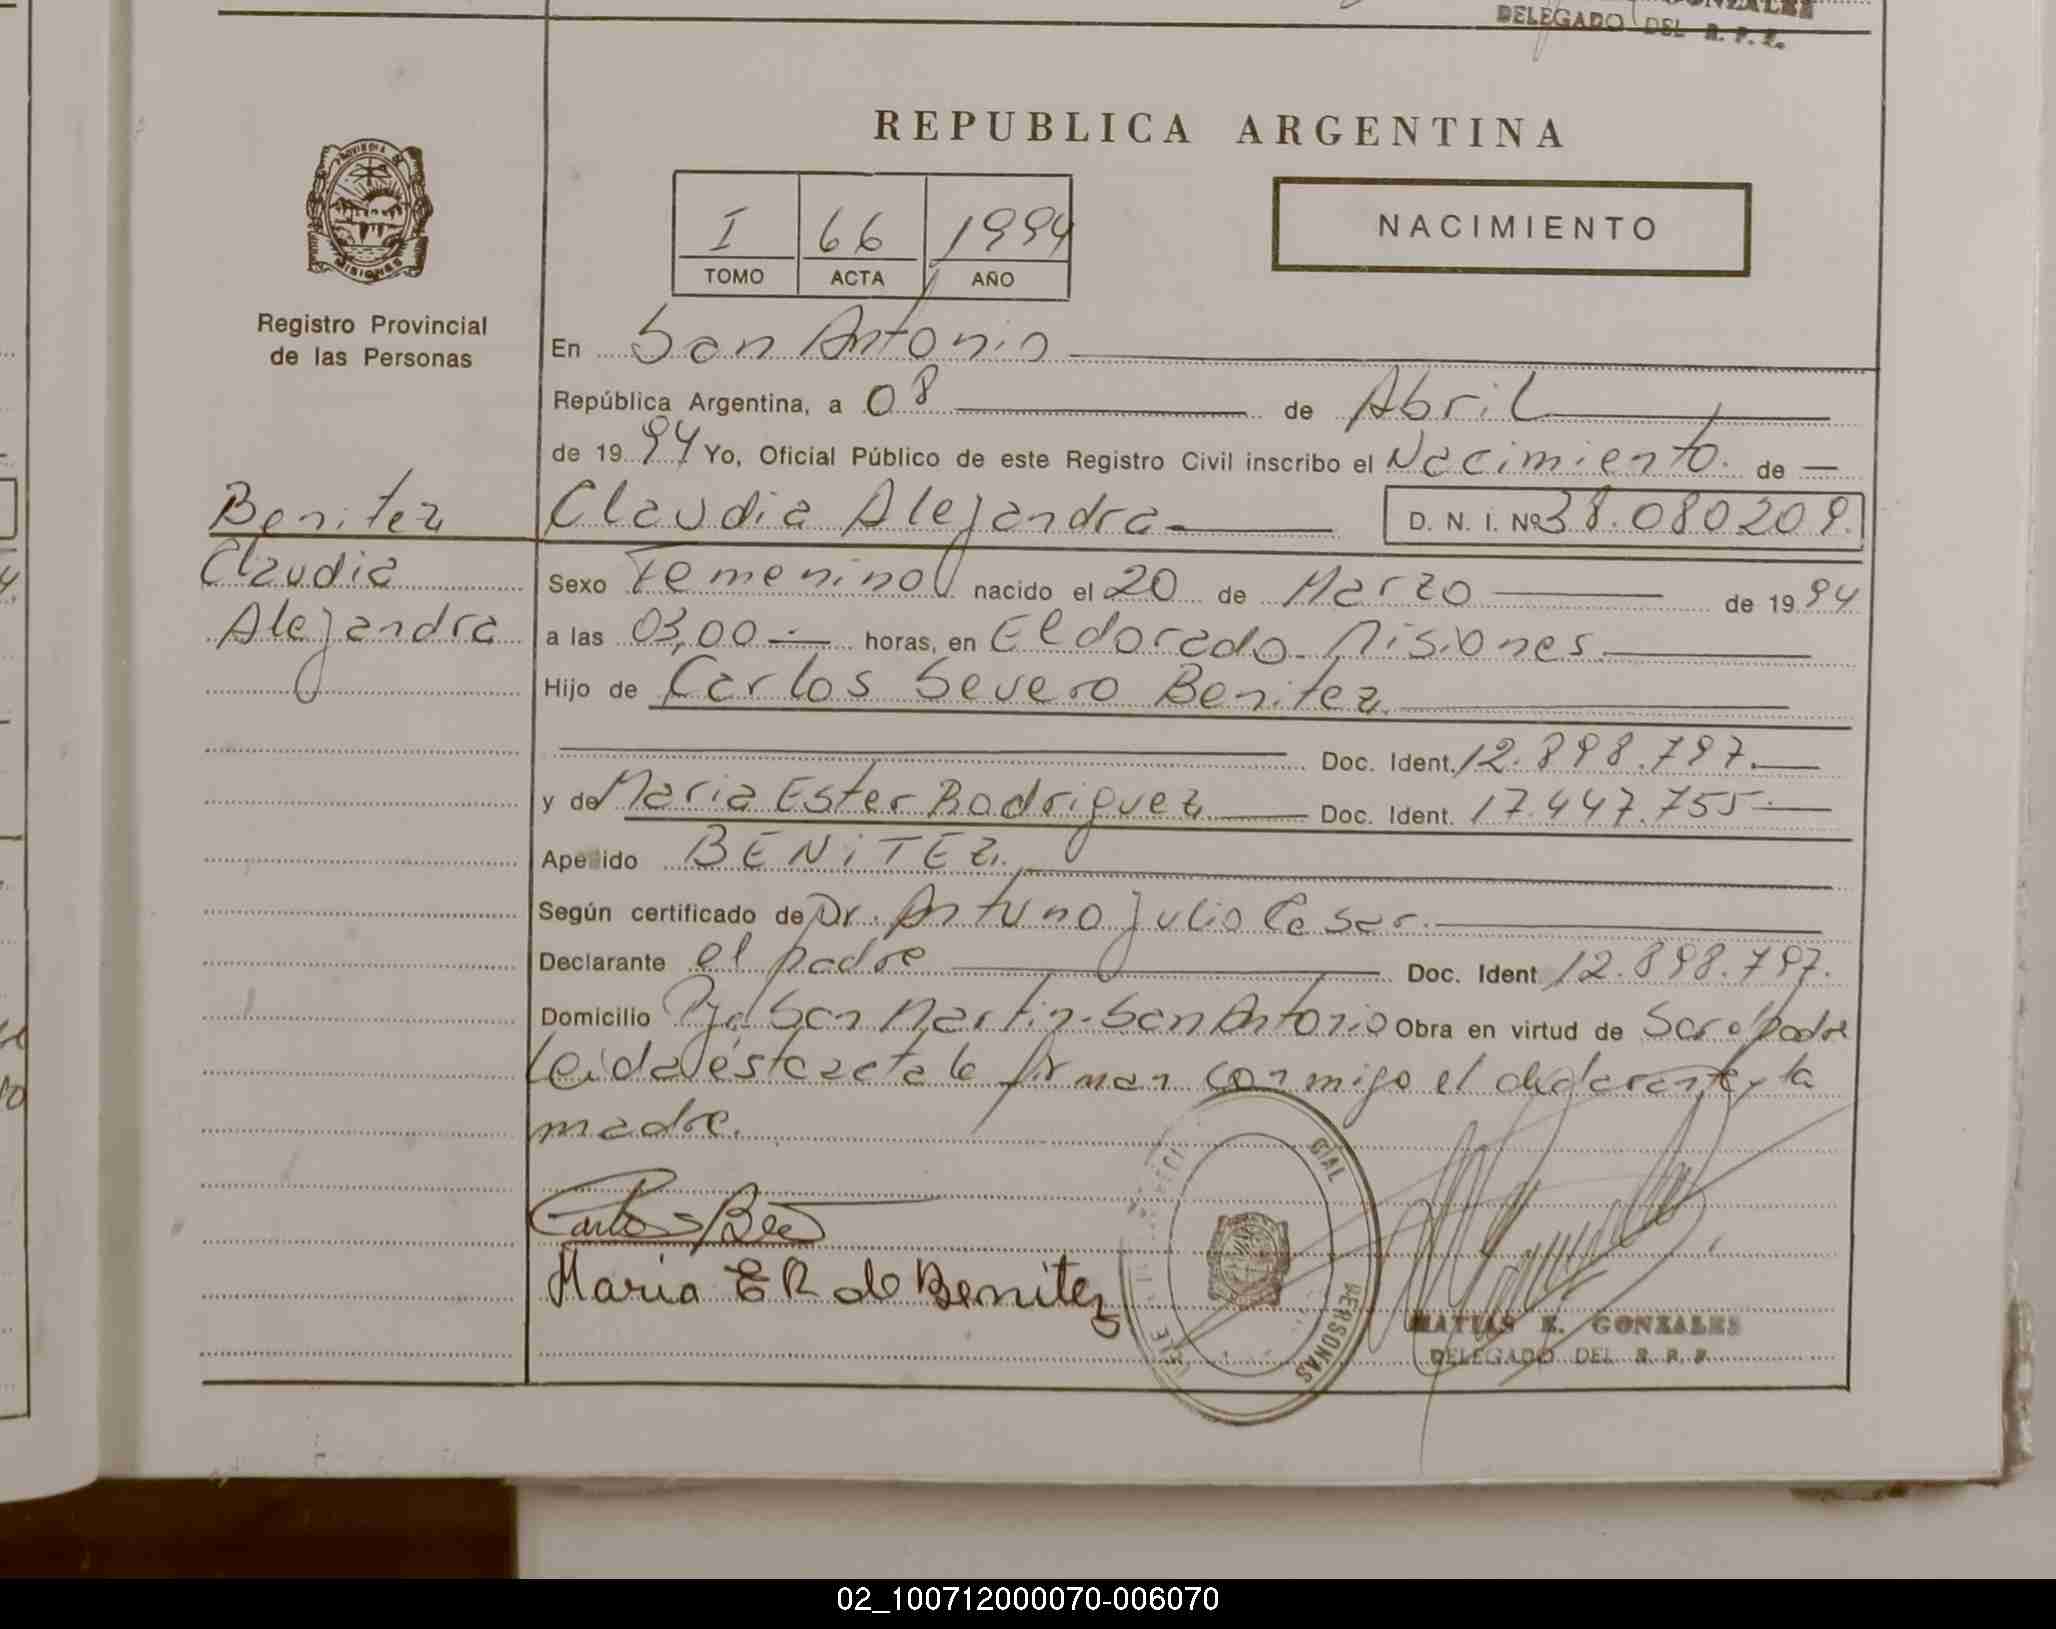 GONZALES
DELEGADO DEL R. P. P.
REPUBLICA ARGENTINA
PROVINCIA DE
MISIONES
I 66 1994
TOMO ACTA AÑO
NACIMIENTO
Registro Provincial
de las Personas
En San Antonio
República Argentina, a 08 de Abril
de 1994 Yo, Oficial Público de este Registro Civil inscribo el Nacimiento. de
Benitez
Claudia
Alejandra
Claudia Alejandra D. N. I. Nº 38.080209.
Sexo Femenino nacido el 20 de Marzo de 1994
a las 03,00 horas, en Eldorado. Misiones.
Hijo de Carlos Severo Benitez.
Doc. Ident. 12.898.797.
y de Maria Ester Rodriguez Doc. Ident. 17.447.755
Apellido BENiTEZ.
Según certificado de Dr. Antuno Julio Cesar.
Declarante el padre Doc. Ident 12.898.797.
Domicilio Pje San Martin. San Antonio Obra en virtud de Ser el padre
Leida ésta acta la firman conmigo el declarante y la
madre.
Carlos
Maria E R de Benitez
PERSONAS
MATIAS E. GONZALES
DELEGADO DEL R. P. P.
02_100712000070-006070